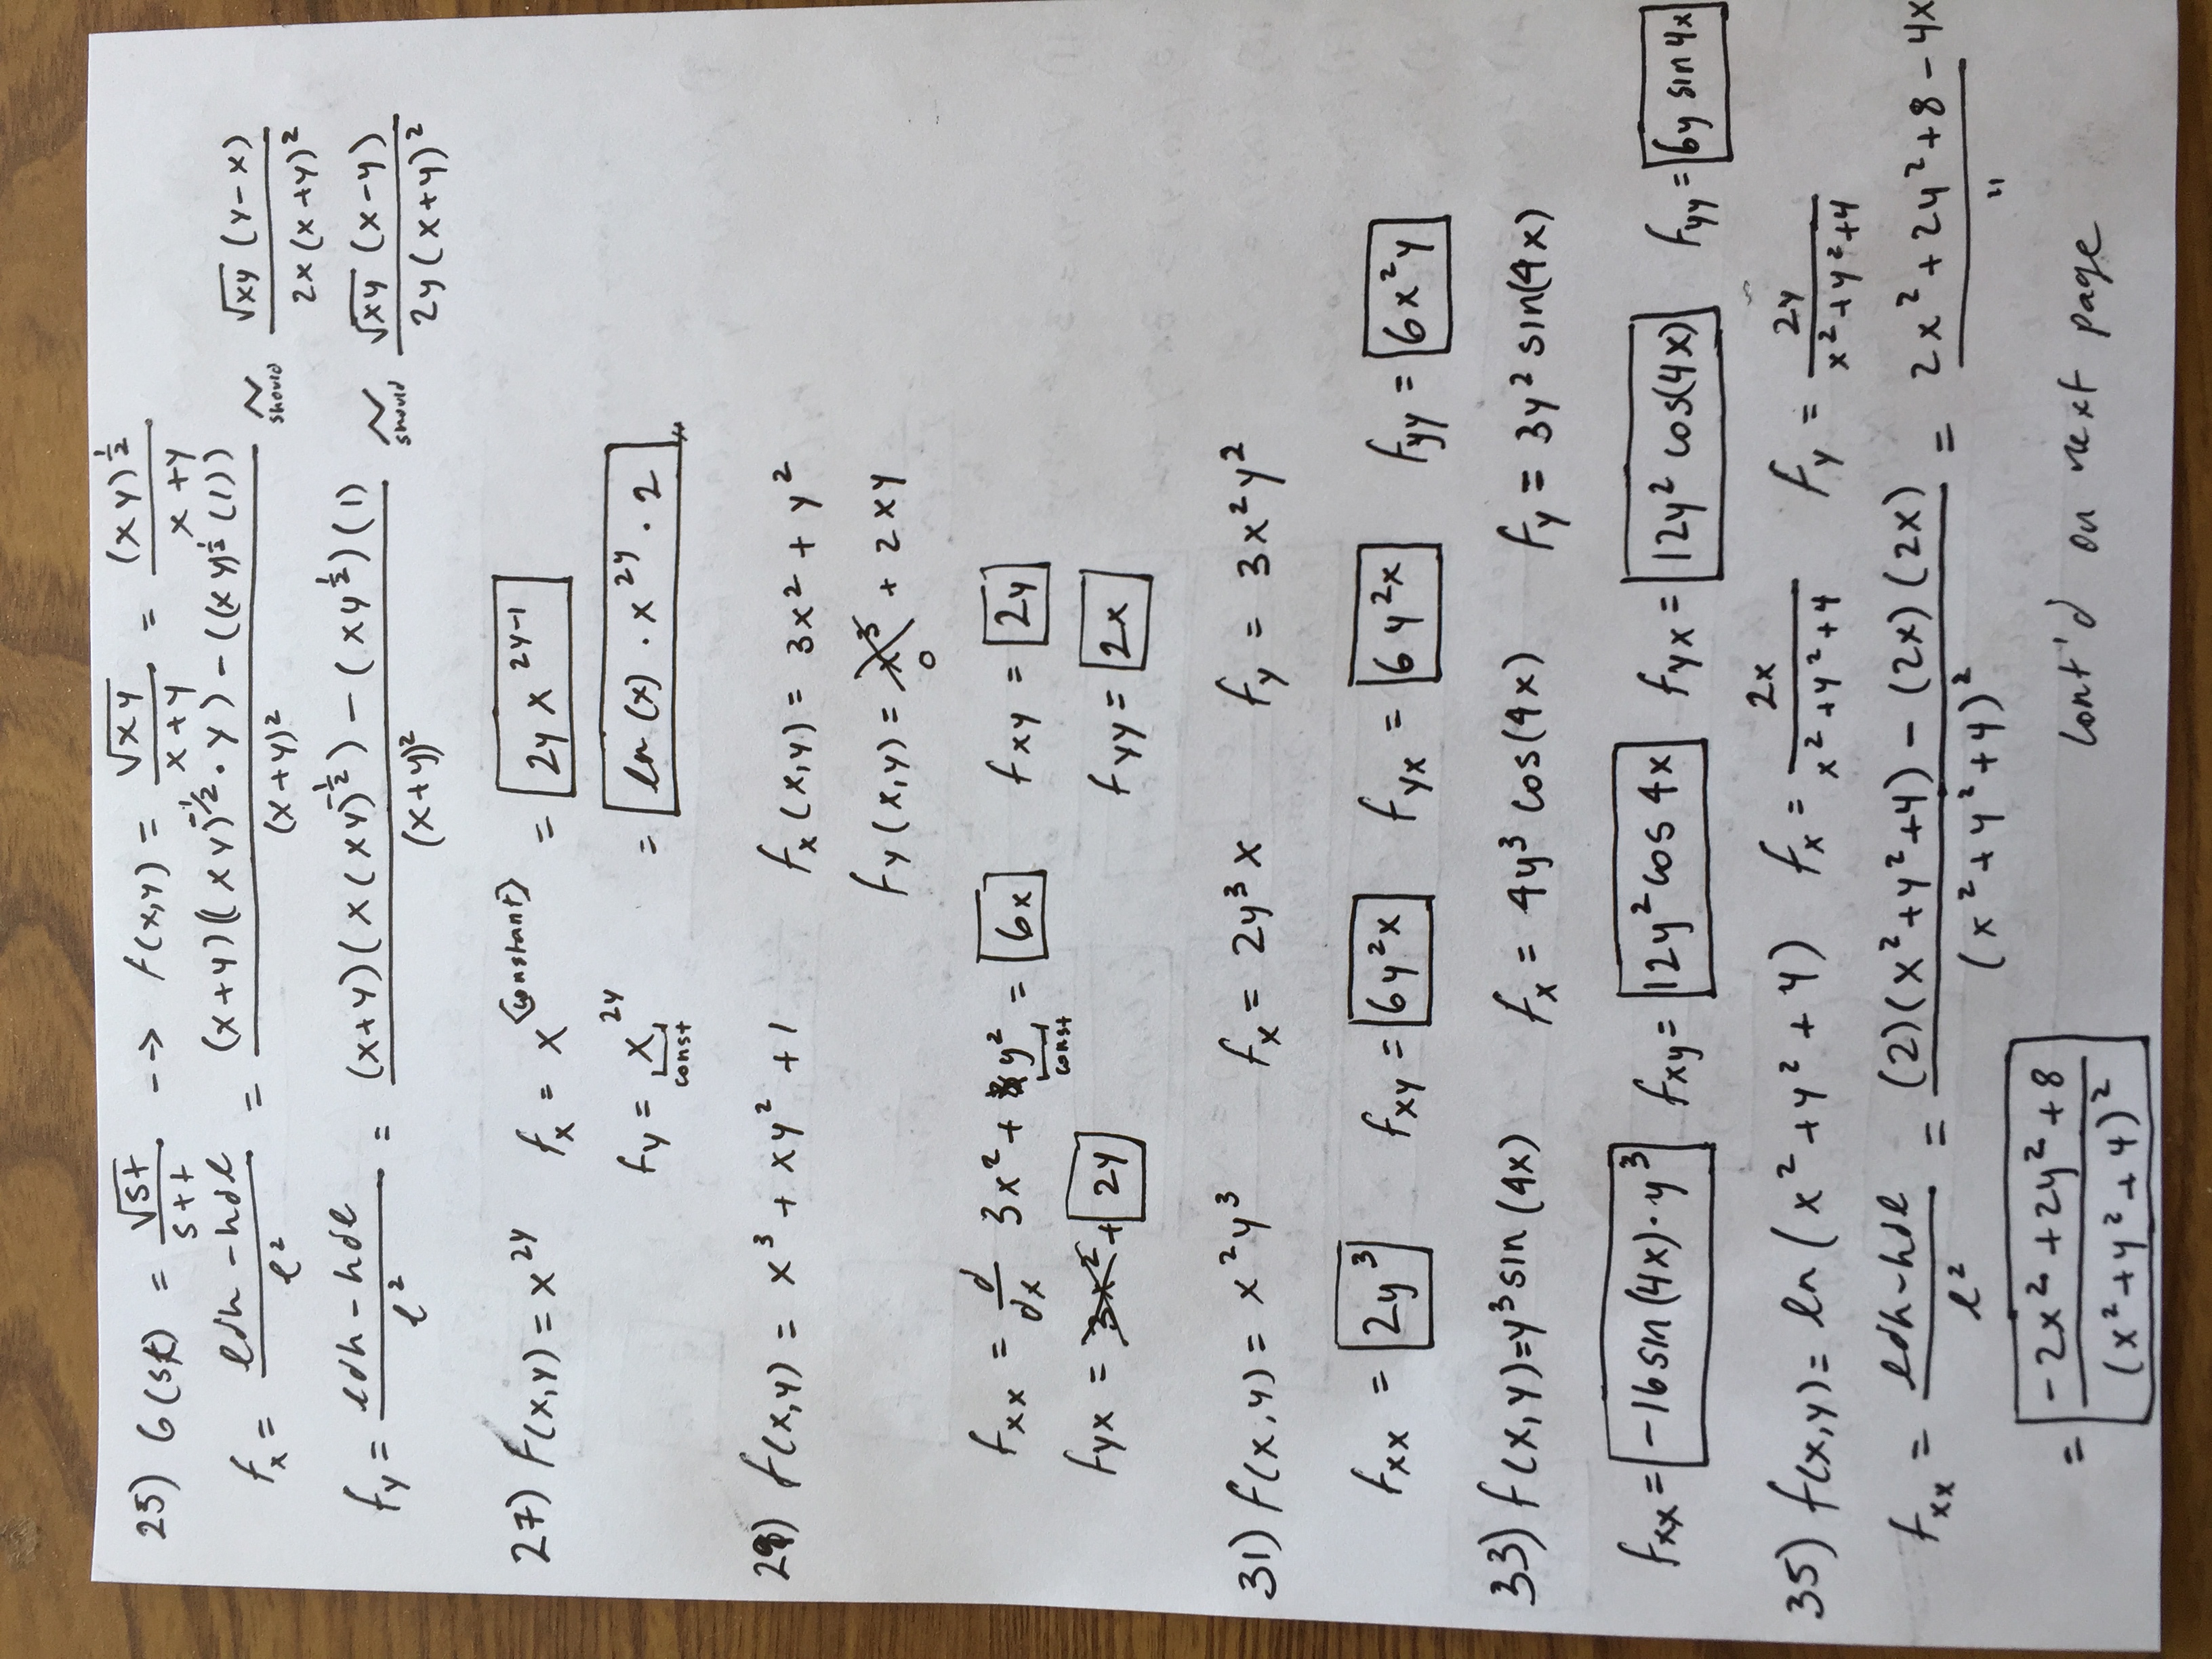 25) G(s,t) = √st / s+t --> f(x,y) = √xy / x+y = (xy)^½ / x+y
f_x = ldh - hdl / l² = (x+y)((xy)^-½ · y) - ((xy)^½ (1)) / (x+y)² ~ should √xy (y-x) / 2x(x+y)²
f_y = ldh - hdl / l² = (x+y)(x(xy)^-½) - (xy^½)(1) / (x+y)² ~ should √xy (x-y) / 2y(x+y)²
27) f(x,y) = x^2y f_x = x^<constant> = 2y x^2y-1
f_y = x^2y = ln(x) · x^2y · 2
const
29) f(x,y) = x³ + xy² + 1 f_x(x,y) = 3x² + y²
f_y(x,y) = x³ + 2xy
0
f_xx = d/dx 3x² + y² = 6x f_xy = 2y
const
f_yx = 3x² + 2y f_yy = 2x
31) f(x,y) = x²y³ f_x = 2y³x f_y = 3x²y²
f_xx = 2y³ f_xy = 6y²x f_yx = 6y²x f_yy = 6x²y
33) f(x,y)=y³sin(4x) f_x = 4y³ cos(4x) f_y = 3y² sin(4x)
f_xx = -16sin(4x)·y³ f_xy = 12y²cos 4x f_yx = 12y² cos(4x) f_yy = 6y sin 4x
35) f(x,y) = ln(x²+y²+4) f_x = 2x / x²+y²+4 f_y = 2y / x²+y²+4
f_xx = ldh-hdl / l² = (2)(x²+y²+4) - (2x)(2x) / (x²+y²+4)² = 2x²+2y²+8-4x / "
= -2x²+2y²+8 / (x²+y²+4)² cont'd on next page